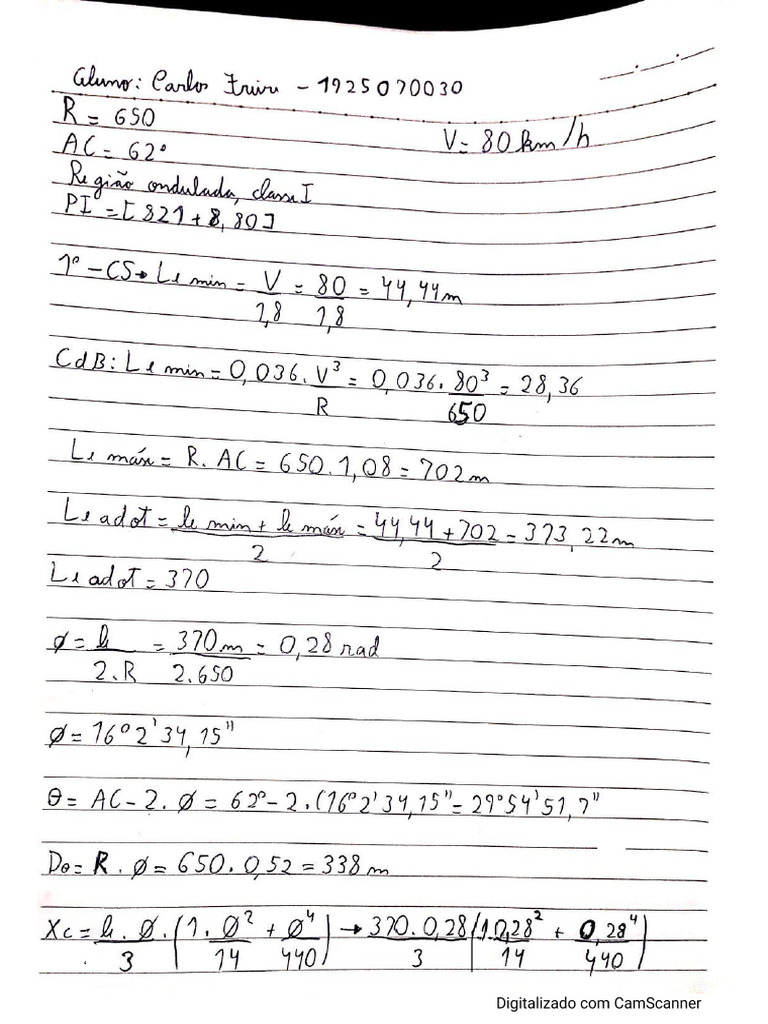 Aluno: Carlos Freire - 1925070030
R = 650
V = 80 km/h
AC = 62°
Região ondulada, classe I
PI = [821 + 8,80]
1° - CS → Le min = V/1,8 = 80/1,8 = 44,44m
CdB: Le min = 0,036 . V³/R = 0,036 . 80³/650 = 28,36
Le máx = R . AC = 650 . 1,08 = 702 m
Le adot = le min + le máx/2 = 44,44 + 702/2 = 373,22m
Le adot = 370
ø = le/2.R = 370m/2.650 = 0,28 rad
ø = 16° 2' 34,15"
θ = AC - 2 . ø = 62° - 2 . (16° 2' 34,15" = 29° 54' 51,7"
Dθ = R . ø = 650 . 0,52 = 338 m
Xc = le . ø/3 . (1 . ø²/14 + ø⁴/440) → 370 . 0,28/3 (1 0,28²/14 + 0,28⁴/440)
Digitalizado com CamScanner